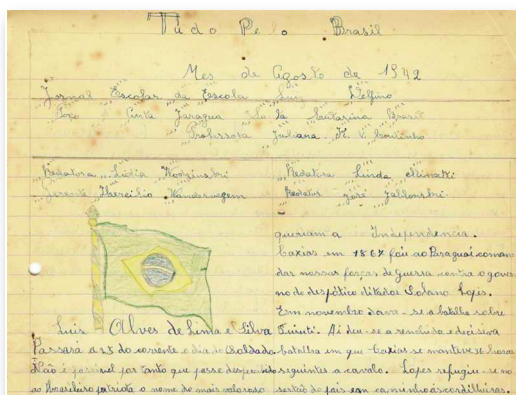 Tudo Pelo Brasil
Mes de Agosto de 1942
Jornal Escolar da Escola Luiz Delfino
Jaragua Santa Catarina Brasil
Professora Juliana
Redatora Lidia Wodzinski
Gerente Hercilio Wanderwegem
Redatora Linda Minatti
Redator José Jablonski
Luis Alves de Lima e Silva
Passará a 25 do corrente o dia do Soldado.
Não é possivel por tanto que passe despercebido
ao Brasileiro patriota o nome do mais valoroso
queriam a Independencia.
Caxias em 1867 foi ao Paraguai coman
dar nossas forças de Guerra contra o gover
no do despótico ditador Solano Lopes.
Em novembro dava-se a batalha sobre
Tuiuti. Ai deu-se a renhida e decisiva
batalha em que Caxias se manteve horas
seguintes a cavalo. Lopes refugiu-se no
sertão do país em caminho ás cordilheiras.